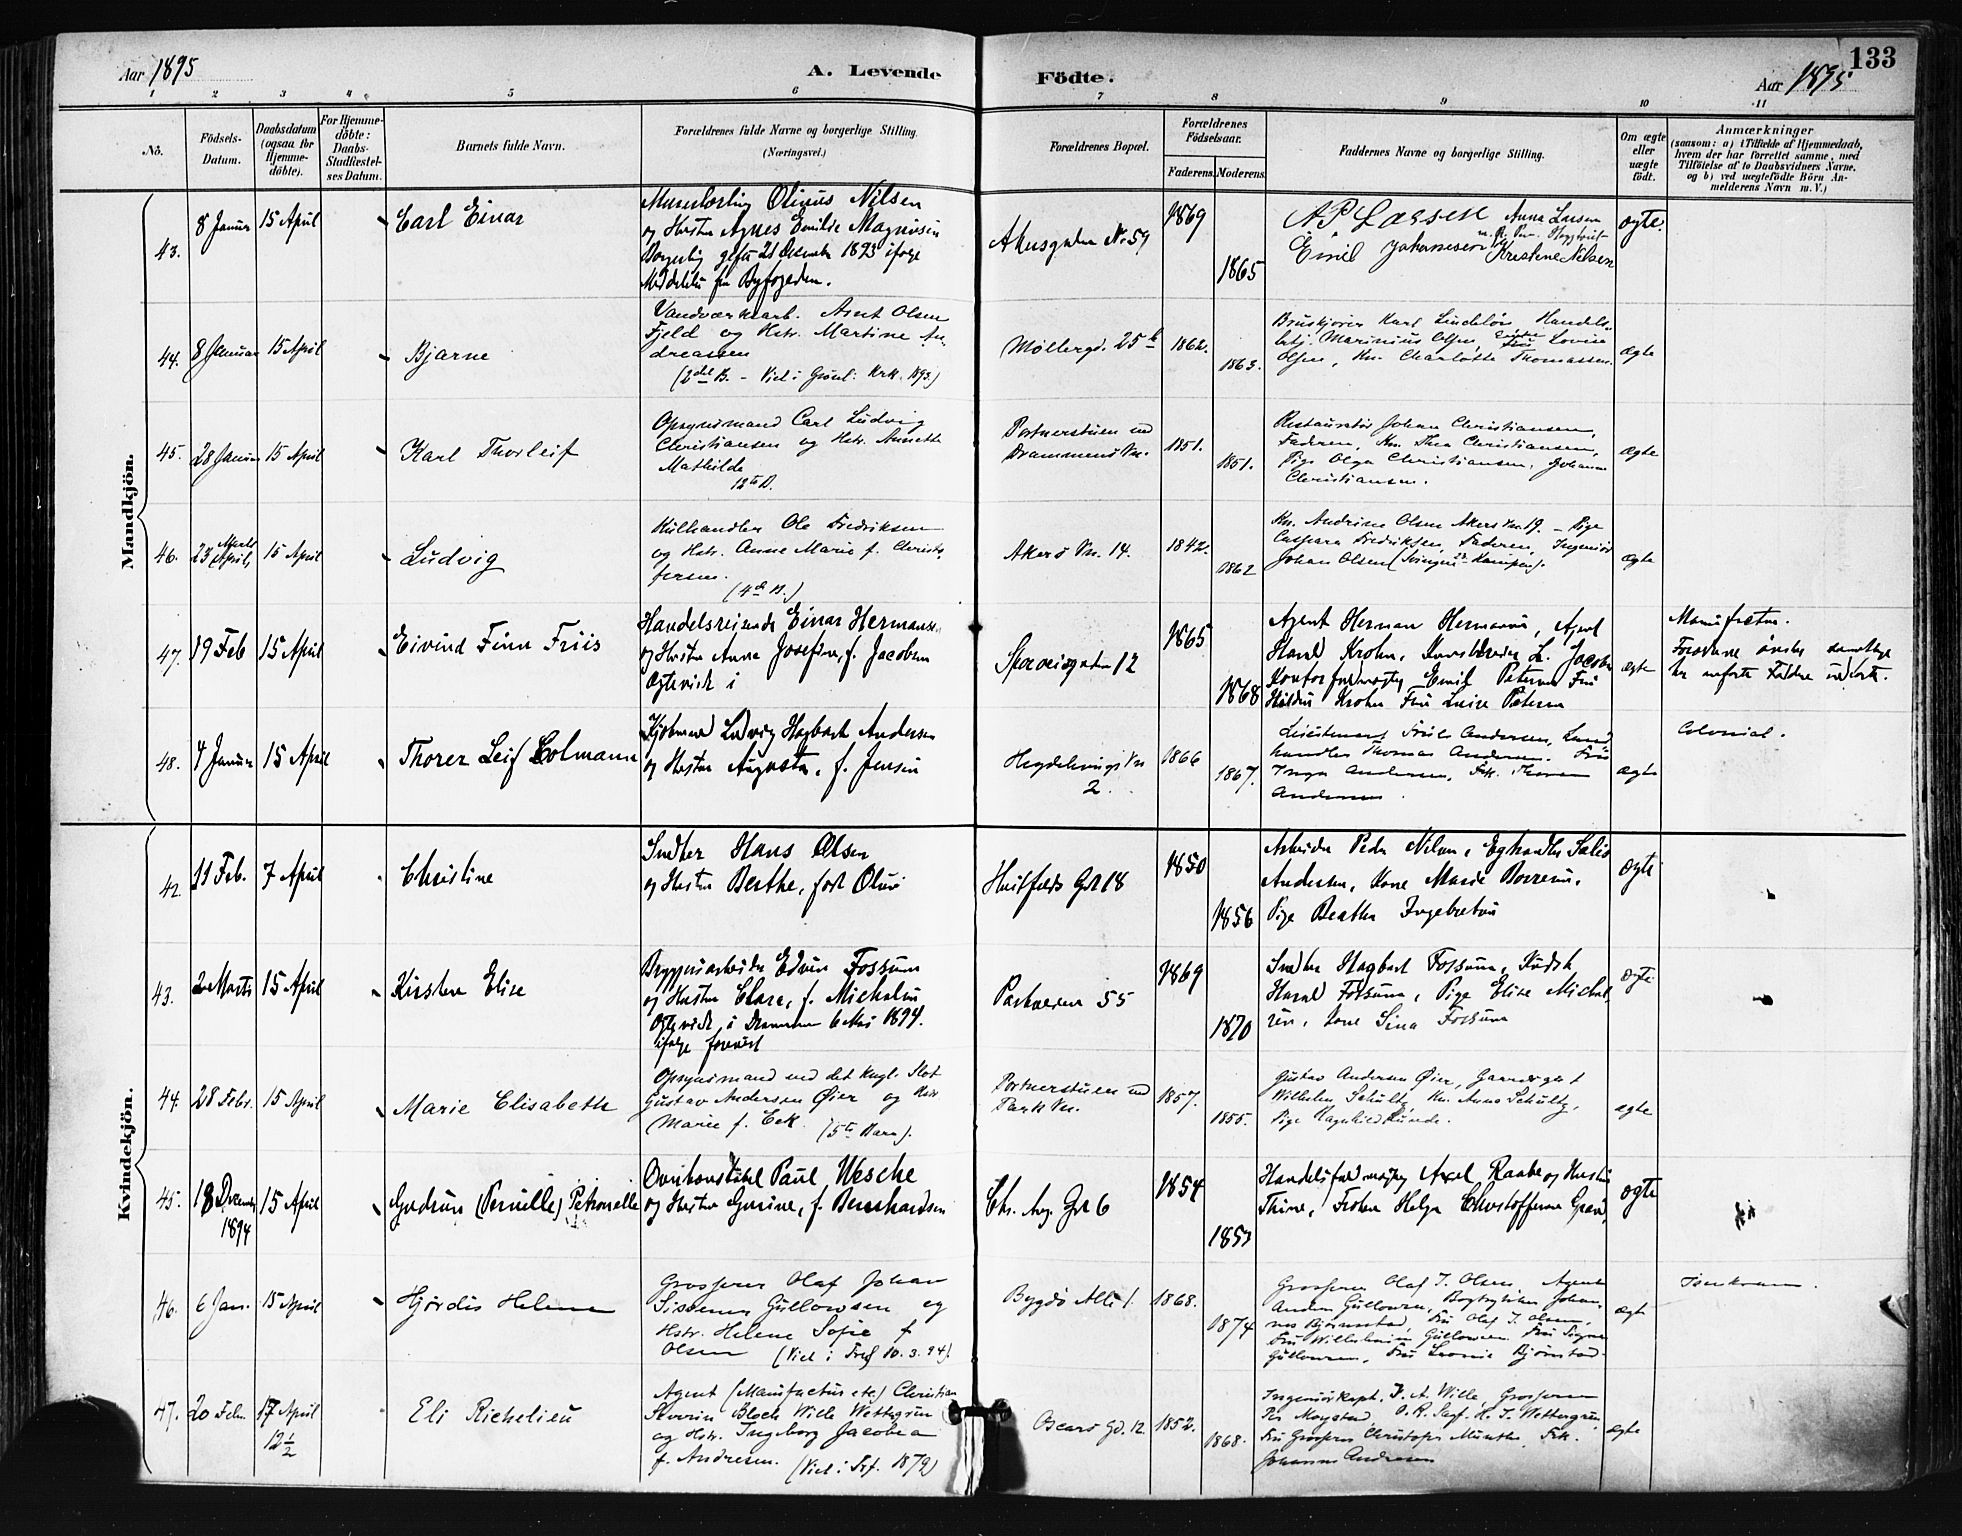 133
Aar 1895
A. Levende
Födte.
Aar 1895
1 2 3 4 5 6 7 8 9 10 11
No.
Födsels-
Datum.
Daabsdatum
(ogsaa for
Hjemme-
döbte).
For Hjemme-
döbte:
Daabs-
Stadfæstel-
ses Datum.
Barnets fulde Navn.
Forældrenes fulde Navne og borgerlige Stilling.
(Næringsvei.)
Forældrenes Bopæl.
Forældrenes
Födselsaar.
Faderens. Moderens.
Faddernes Navne og borgerlige Stilling.
Om ægte
eller
uægte
födt.
Anmærkninger
(saasom: a) i Tilfælde af Hjemmedaab,
hvem der har forrettet samme, med
Tilföielse af to Daabsvidners Navne,
og b) ved uegtefödte Börn An-
melderens Navn m. V.)
Mandkjön.
43.
8 Januar
15 April
Carl Einar
Olinus Nilsen
og Hustru Agnes Emilie Magnusen
gift 21 December 1893 ifølge
fra Byfogden.
Akersgaden No 59
1869
1865
A P Larsen Anna Larsen
Emil Johannesen Kristine Nilsen
ægte.
44.
8 Januar
15 April
Bjarne
Vandværksarb. Arnt Olsen
Fjeld og Hstr. Martine An-
dreassen
(2det B. - Viet i Grønl. Krk. 1893.)
Møllergd. 25 b
1862.
1863.
Karl Lindeløv Handels-
betj. Marinius Olsen, Lovise
Olsen, Kn. Charlotte Thomassen.
ægte
45.
28 Januar
15 April
Karl Thorleif
Opsynsmand Carl Ludvig
Christiansen og Hstr. Annette
Mathilde
12te B.
Portnerstuen ved
Drammensvn.
1851.
1851.
Restauratør Johan Christiansen,
Faderen, Kn. Thea Christiansen,
Pige Olga Christiansen, Johanne
Christiansen.
ægte
46.
23 April
15 April
Ludvig
Kulhandler Ole Fredriksen
og Hstr. Anne Marie f. Christo-
fersen.
(4de B.)
Akers Vn. 14.
1842.
1862
Kn. Andrine Olsen Akers vn. 19. - Pige
Caspara Fredriksen, Faderen, Ingeniør
Johan Olsen (Svingen 22 Kampen).
ægte
47.
19 Feb
15 April
Eivind Finn Friis
Handelsreisende Einar Hermansen
og Hustru Anna Josefine, f. Jacobsen
Ægteviet i
Sporveisgaden 12
1865
1868
Agent Herman Hermansen, Agent
Harald Krohn, L. Jacobsen
Kontorfuldmægtig Emil Petersen Fru
Hilda Krohn Fru Luise Petersen
ægte
Manufactur.
48.
4 Januar
15 April
Thorer Leif Colmann
Kjøbmand Ludvig Hagbart Andersen
og Hustru Augusta, f. Jensen
Hegdehaugsvn
2.
1866
1867.
Andersen, Land
handler Thomas Andersen. Fru
Inga Andersen, Frk. Thoren
Andersen.
ægte
Colonial.
Kvindekjön.
42
11 Feb.
7 April
Christine
Snedker Hans Olsen
og Hustru Berthe, født Olsen
Huitfelds Gd 18
1850
1856
Arbeider Peder Nilsen,
Andersen, Kone Marie
Pige Beathe Ingebretsen
ægte
43.
2 Marts
15 April
Kirsten Elise
Bryggeriarbeider Edvin Fossum
og Hustru Clara, f. Michelsen
Ægteviet i Drammen 6 Mai 1894.
ifølge forevist
Parkveien 55
1869
1870
Snedker Hagbart Fossum, Kudsk
Harald Fossum, Pige Elise Michel
sen, Kone Sina Fossum
ægte
44.
28 Febr.
15 April
Marie Elisabeth
Opsynsmand ved det kngl. Slot
Gustav Andersen Øier og Hstr.
Marie f. Eek. (5te Barn).
Portnerstuen ved
Parkvn.
1857.
1855.
Gustav Andersen Øier,
Wilhelm Schultz, Kn. Anna Schultz,
Pige Ragnhild Kunde.
ægte
45.
18 December
1894
15 April
Gudrun (Pernille) Petronelle
Paul Wesche
og Hustru Gurine, f. Bernhardsen
Chr. Aug. Gd 6
1854
1853
Handelsfuldmægtig Axel Raabe og Hustru
Thine, Frøken Helga
ægte
46.
6 Jan.
15 April
Hjørdis Helene
Grosserer Olaf Johan
Gullowsen og
Hstr. Helene Sofie f
Olsen (Viet i Tref 10.3.94).
Bygdø Allé 1.
1868.
1874
Grosserer Olaf J. Olsen, Agent
Anders Gullowsen, Johan-
nes Bjørnstad, Fru Olaf J. Olsen,
Fru Wilhelmine Gullowsen Fru Signe
Gullowsen, Fru Leonie Bjørnstad.
ægte
Isenkram.
47.
20 Febr.
17 April
12½
Eli Richelieu
Agent (Manufactur etc) Christian
Severin Bloch Wille Wettergren
og Hstr. Ingeborg Jacobea
f. Andresen.
Oscars Gd. 12.
1852.
1868.
Ingeniørkapt. J. A. Wille, Grosserer
Per Møystad, O.R. Sagf. H. J. Wettergren,
Fru Grosserer Christofer Munthe, Frk.
Johanne Andresen
ægte